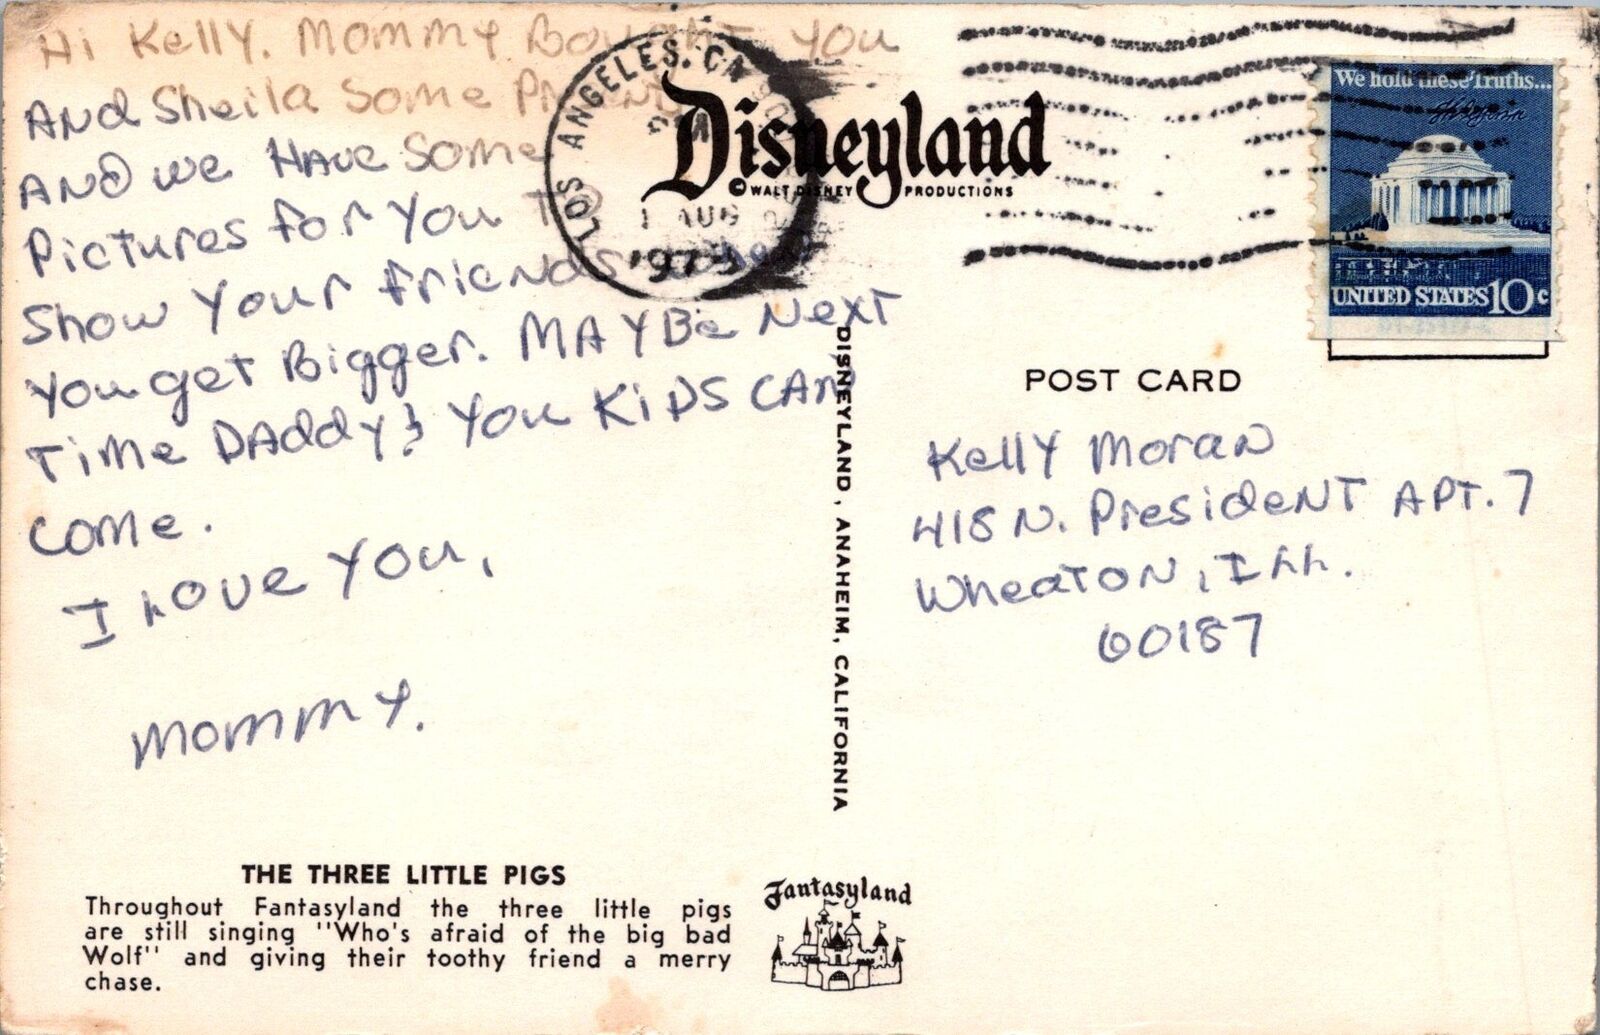 Hi Kelly. Mommy Bought You
And Sheila Some
And we Have Some
Pictures for You To
Show Your friends when
You get Bigger. MAYBe Next
Time DAddy & You KiDS CAN
Come.
I Love You,
Mommy.
THE THREE LITTLE PIGS
Throughout Fantasyland the three little pigs
are still singing "Who's afraid of the big bad
Wolf" and giving their toothy friend a merry
chase.
Fantasyland
DISNEYLAND, ANAHEIM, CALIFORNIA
LOS ANGELES, CA
PM
1 AUG
1975
Disneyland
© WALT DISNEY PRODUCTIONS
We hold these Truths...
UNITED STATES 10c
POST CARD
Kelly Moran
418 N. President APT. 7
Wheaton, Ill.
60187